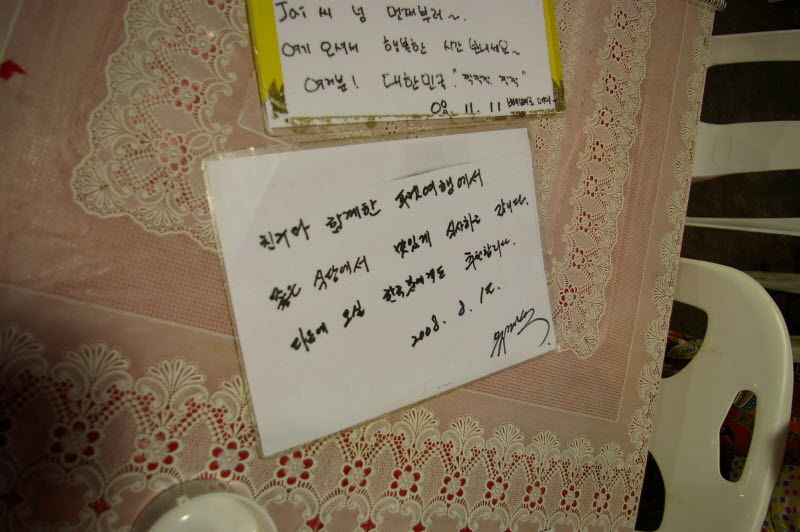 Jai 씨 넘 먼저부러~.
여기 오셔서 행복한 시간 보내세요~
여러분! 대한민국. "짝짝짝 짝짝"
08. 11. 11
친구와 함께한 푸켓여행에서
좋은 식당에서 맛있게 식사하고 갑니다.
다음에 오실 한국분에게도 추천합니다.
2008. 8. 12.